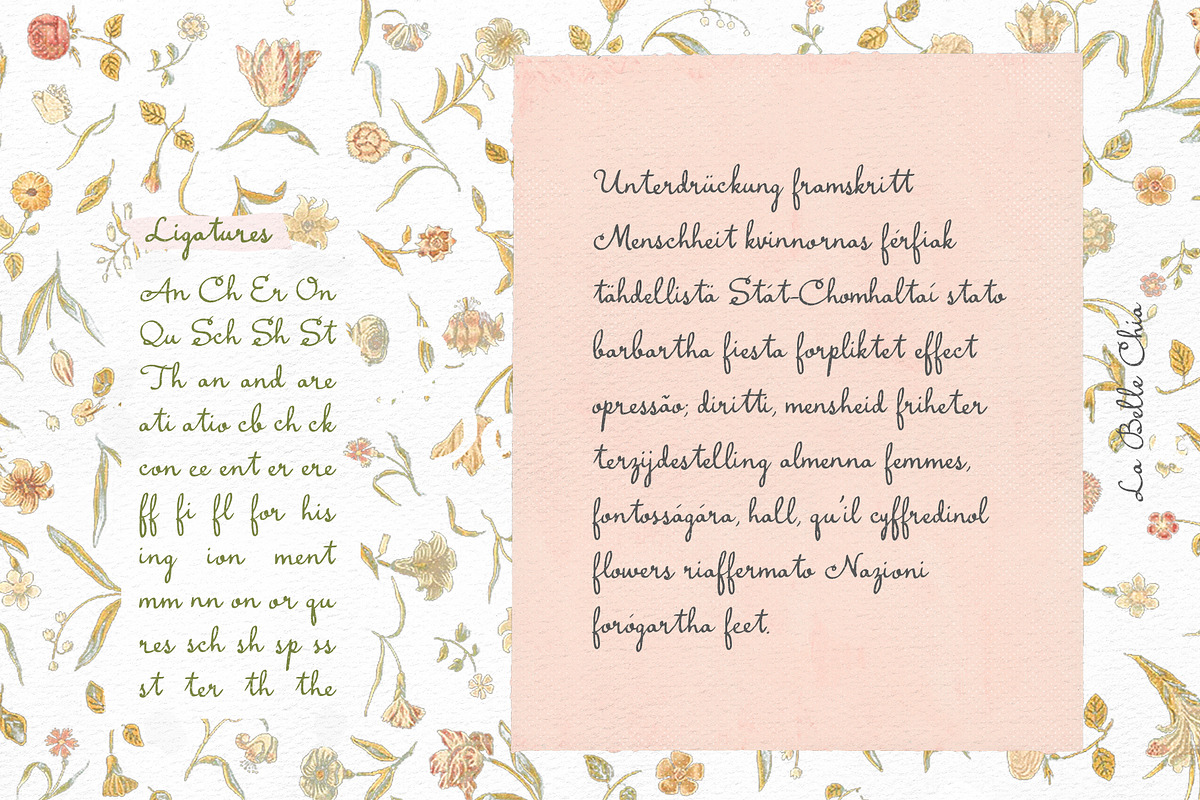 Ligatures
An Ch Er On
Qu Sch Sh St
Th an and are
ati atio cb ch ck
con ee ent er ere
ff fi fl for his
ing ion ment
mm nn on or qu
res sch sh sp ss
st ter th the
Unterdrückung framskritt
Menschheit kvinnornas férfiak
tähdellistä Stát-Chomhaltaí stato
barbartha fiesta forpliktet effect
opressão; diritti, mensheid friheter
terzijdestelling almenna femmes,
fontosságára, hall, qu'il cyffredinol
flowers riaffermato Nazioni
forógartha feet.
La Belle Chia